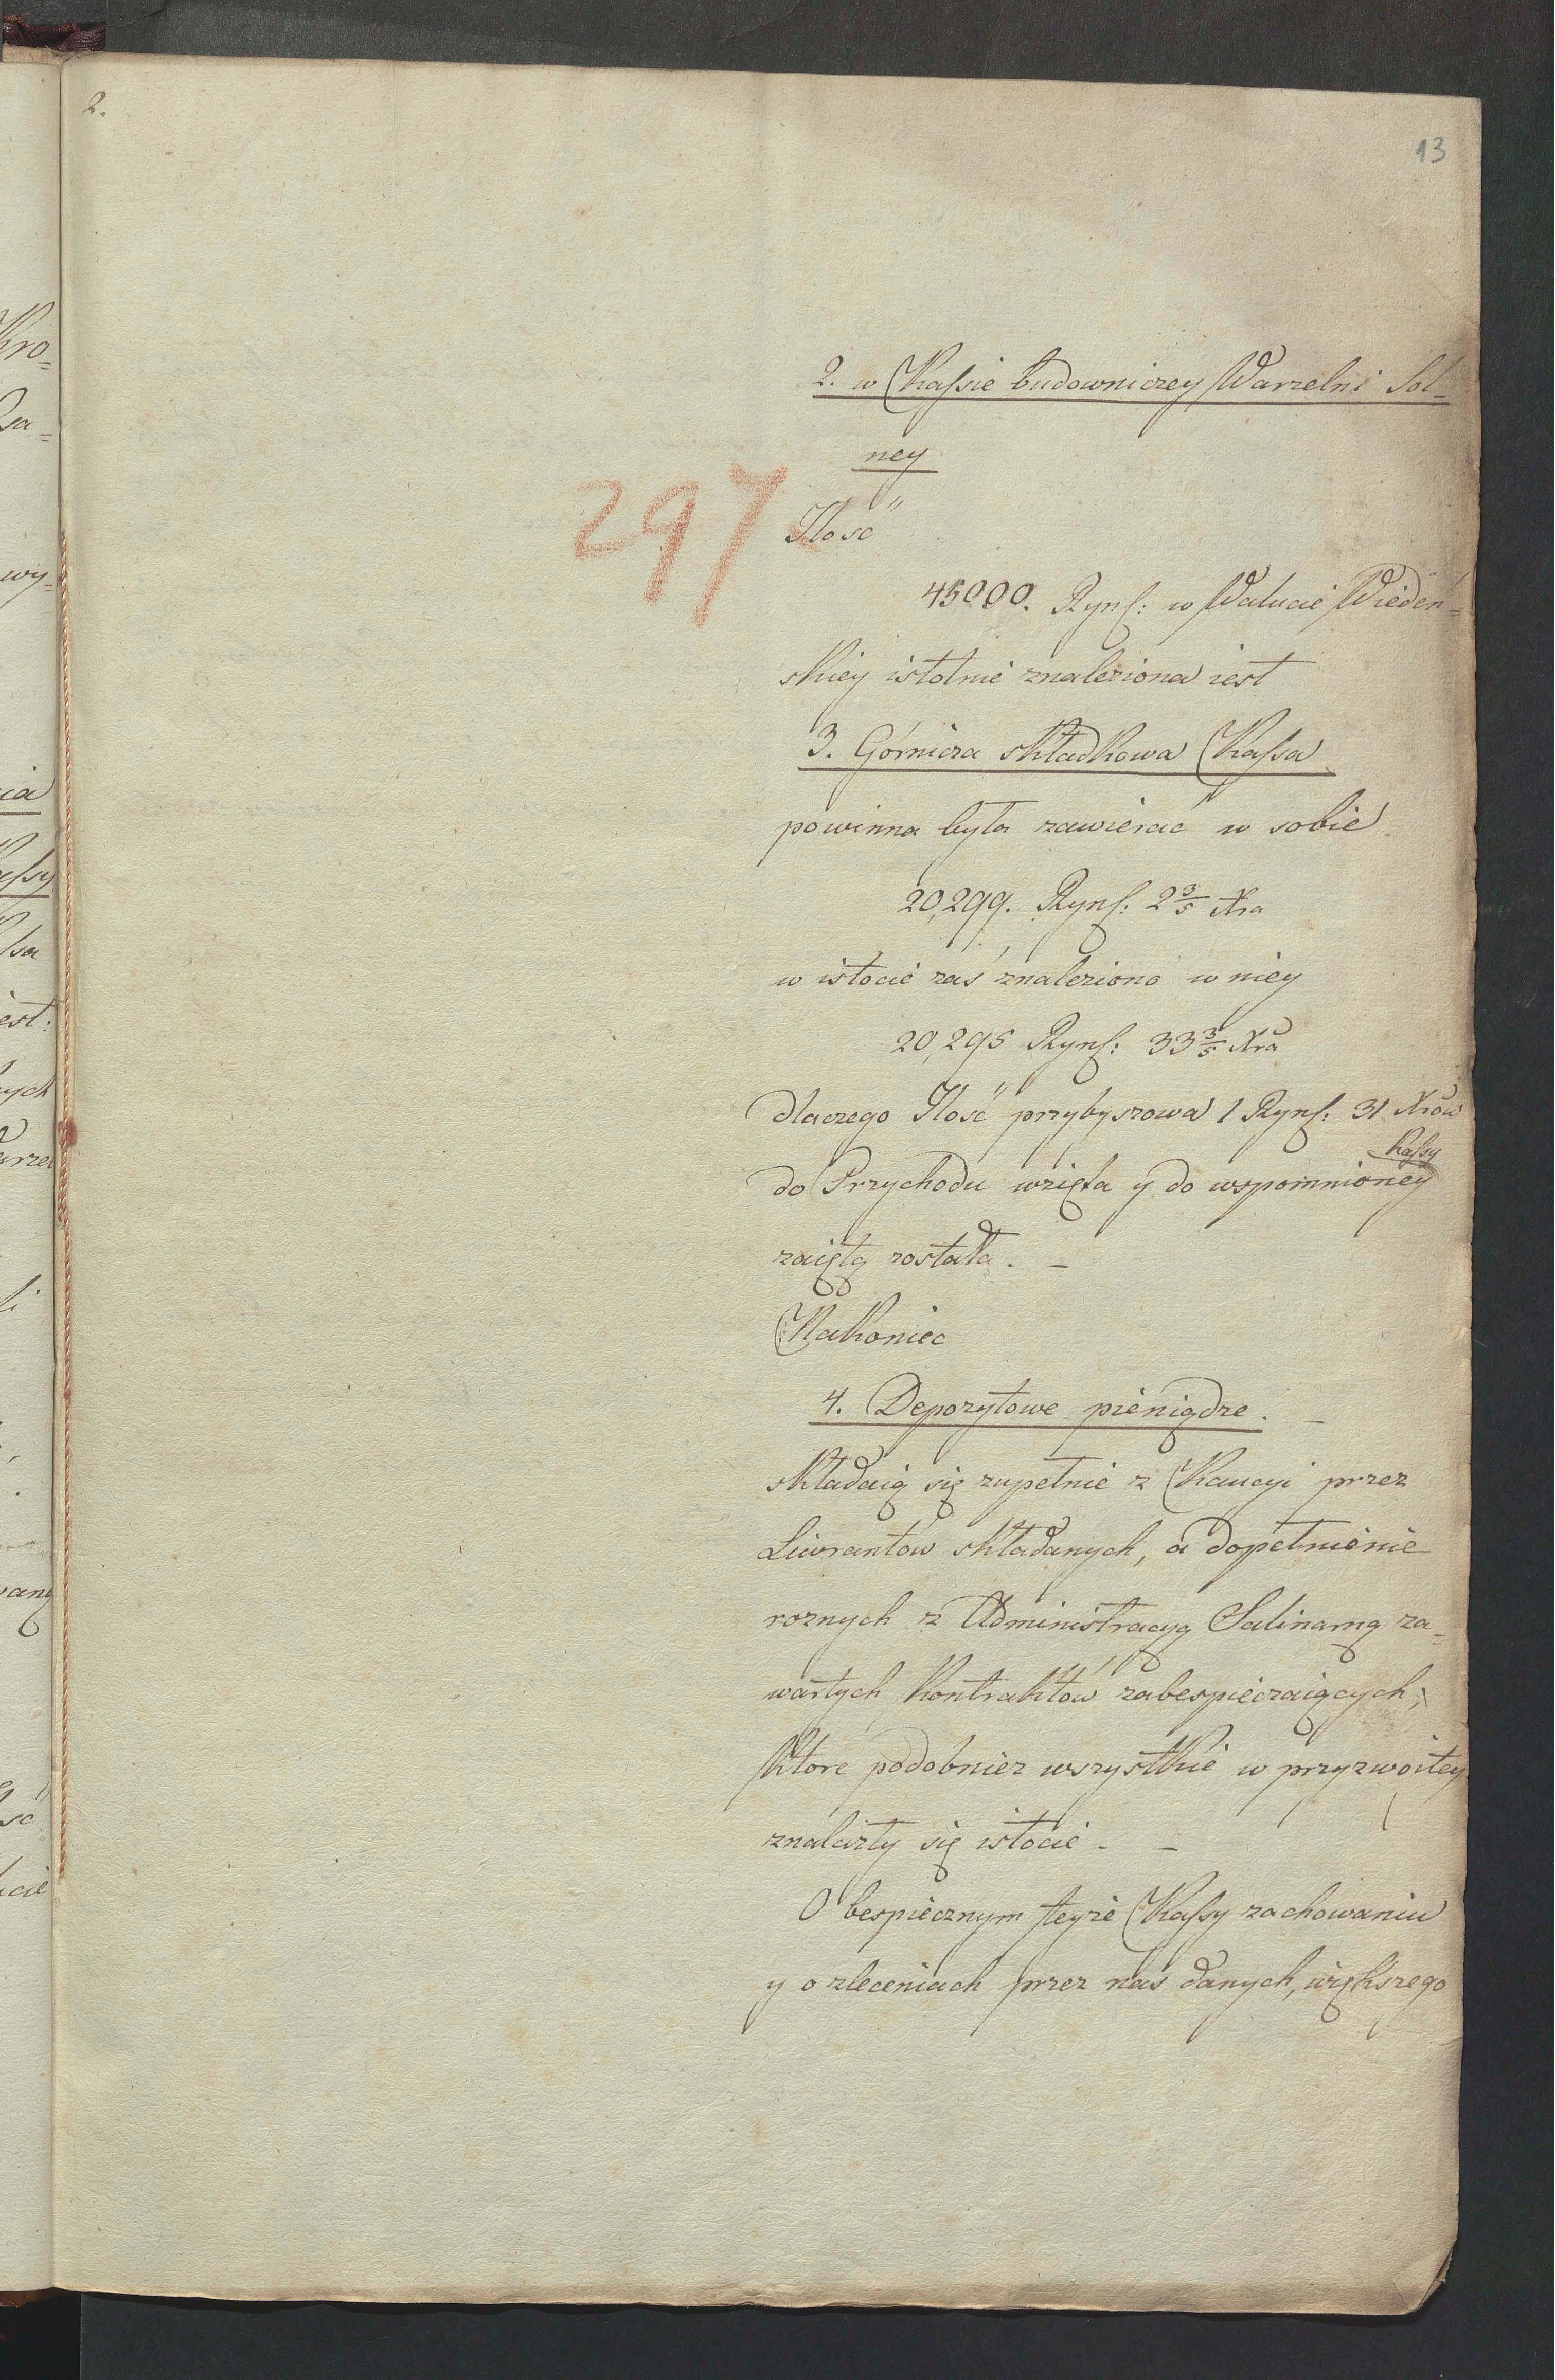 2.
13
2. w Kassie budowniczey Warzelni Sol-
ney
297
Ilość
45000. Rynſ: w Walucie Wiedeń=
skiey istotnie znaleziona iest
3. Górnicza składkowa Kassa
powinna była zawierać w sobie
20,299. Rynſ: 2 3/5 Xra
w istocie zaś znaleziono w niey
20,295 Rynſ: 33 3/5 Xra
dlaczego Ilość przybyszowa 1 Rynſ: 31 Xrów
Kassy
do Przychodu wzięta y do wspomnioney
zaiętą została. –
Nakoniec
4. Depozytowe pieniądze. –
składaią się zupełnie z Kaucyi przez
Liwrantów składanych, a dopełnienie
roznych z Administracyą Salinarną za=
wartych Kontraktów zabespieczaiących,
które podobnież wszystkie w przyzwoitey
znalazły się istocie. –
O bespiecznym teyże Kassy zachowaniu
y o zleceniach przez nas danych, większego